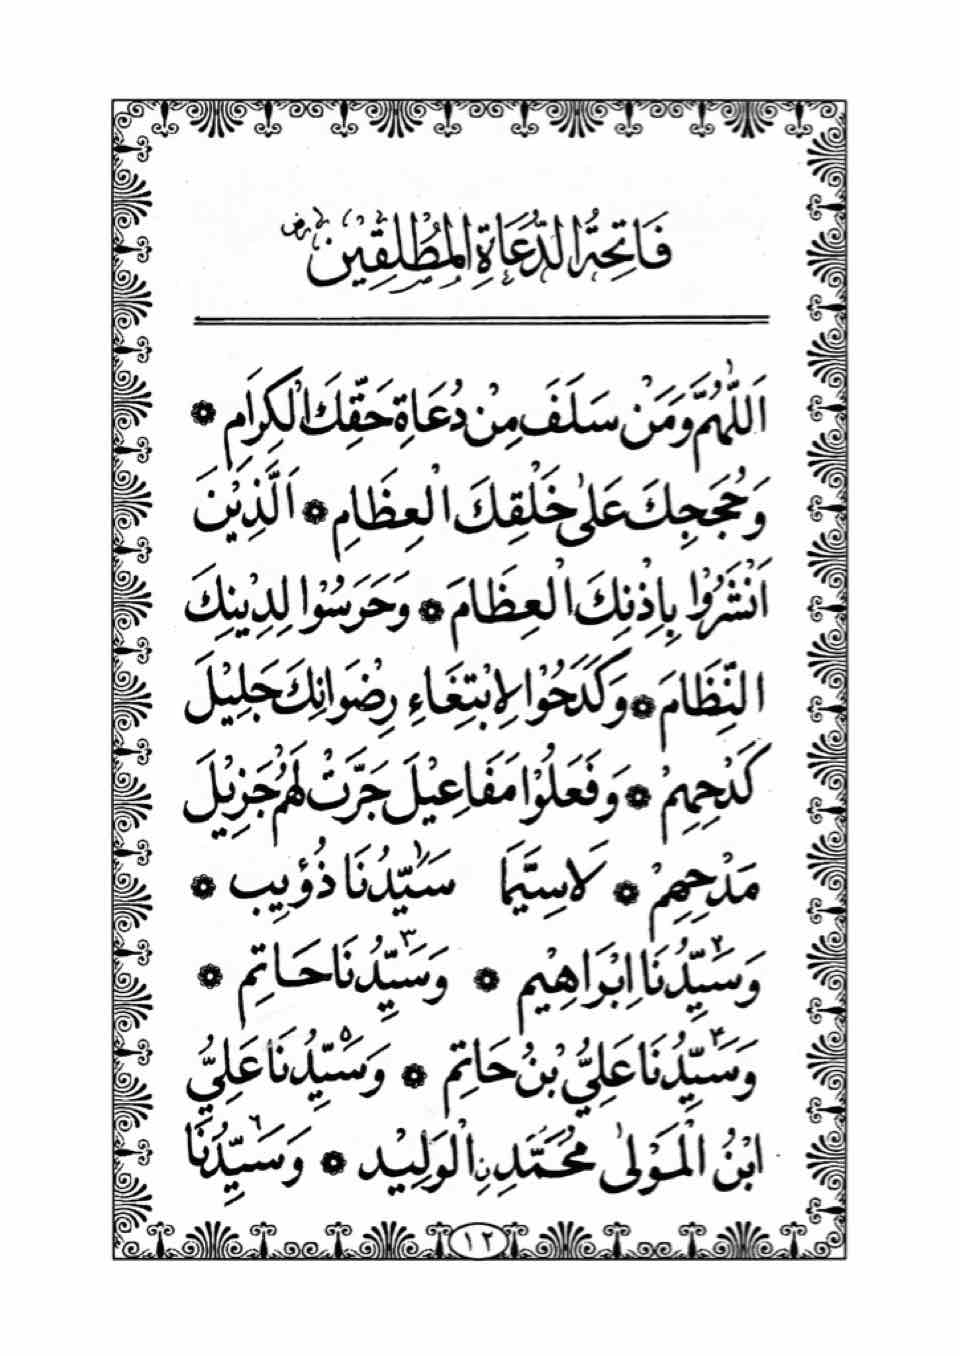 فَاتِحَةُ الدُّعَاةِ الْمُطْلَقِيْنَ رض
اَللّٰهُمَّ وَمَنْ سَلَفَ مِنْ دُعَاةِ حَقِّكَ الْكِرَامِ ۞
وَحُجَجِكَ عَلٰى خَلْقِكَ الْعِظَامِ ۞ اَلَّذِيْنَ
اَنْشَرُوْا بِاِذْنِكَ الْعِظَامَ ۞ وَحَرَسُوْا لِدِيْنِكَ
النِّظَامَ ۞ وَكَدَحُوْا لِابْتِغَاءِ رِضْوَانِكَ جَلِيْلَ
كَدْحِهِمْ ۞ وَفَعَلُوْا مَفَاعِيْلَ جَرَّتْ لَهُمْ جَزِيْلَ
مَدْحِهِمْ ۞ لَاسِيَّمَا سَيِّدُنَا١ ذُؤَيِب ۞
وَسَيِّدُنَا٢ اِبْرَاهِيْم ۞ وَسَيِّدُنَا٣ حَاتِم ۞
وَسَيِّدُنَا۴ عَلِيُّ بْنُ حَاتِم ۞ وَسَيِّدُنَا۵ عَلِيُّ
ابْنُ الْمَوْلٰى مُحَمَّدِنِ الْوَلِيْد ۞ وَسَيِّدُنَا٦
١٢